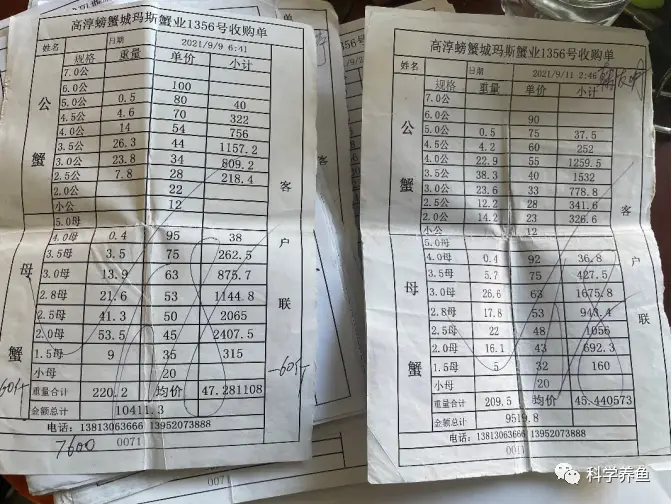 高淳螃蟹城玛斯蟹业1356号收购单
姓名 日期 2021/9/9 6:41
规格 重量 单价 小计
公蟹
7.0公
6.0公 100
5.0公 0.5 80 40
4.5公 4.6 70 322
4.0公 14 54 756
3.5公 26.3 44 1157.2
3.0公 23.8 34 809.2
2.5公 7.8 28 218.4
2.0公 22
小公 12
母蟹
5.0母
4.0母 0.4 95 38
3.5母 3.5 75 262.5
3.0母 13.9 63 875.7
2.8母 21.6 53 1144.8
2.5母 41.3 50 2065
2.0母 53.5 45 2407.5
1.5母 9 35 315
小母 20
重量合计 220.2 均价 47.281108
金额总计 10411.3
电话：13813063666 13952073888
0071
7600
客户联
高淳螃蟹城玛斯蟹业1356号收购单
姓名 日期 2021/9/11 2:46
规格 重量 单价 小计
公蟹
7.0公
6.0公 90
5.0公 0.5 75 37.5
4.5公 4.2 60 252
4.0公 22.9 55 1259.5
3.5公 38.3 40 1532
3.0公 23.6 33 778.8
2.5公 12.2 28 341.6
2.0公 14.2 23 326.6
小公 12
母蟹
5.0母
4.0母 0.4 92 36.8
3.5母 5.7 75 427.5
3.0母 26.6 63 1675.8
2.8母 17.8 53 943.4
2.5母 22 48 1056
2.0母 16.1 43 692.3
1.5母 5 32 160
小母 20
重量合计 209.5 均价 45.440573
金额总计 9519.8
电话：13813063666 13952073888
0071
客户联
科学养鱼